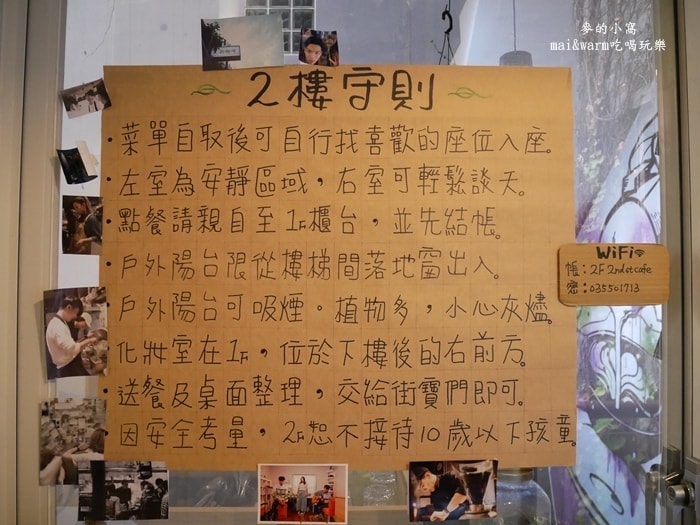 麥的小窩
mai&warm吃喝玩樂
2樓守則
·菜單自取後可自行找喜歡的座位入座。
·左室為安靜區域,右室可輕鬆談天。
·點餐請親自至1F櫃台,並先結帳。
·戶外陽台限從樓梯間落地窗出入。
·戶外陽台可吸煙。植物多,小心灰燼。
·化妝室在1F,位於下樓後的右前方。
·送餐及桌面整理,交給街寶們即可。
·因安全考量,2F恕不接待10歲以下孩童。
WiFi
帳:2F 2ndst cafe
密:035501713